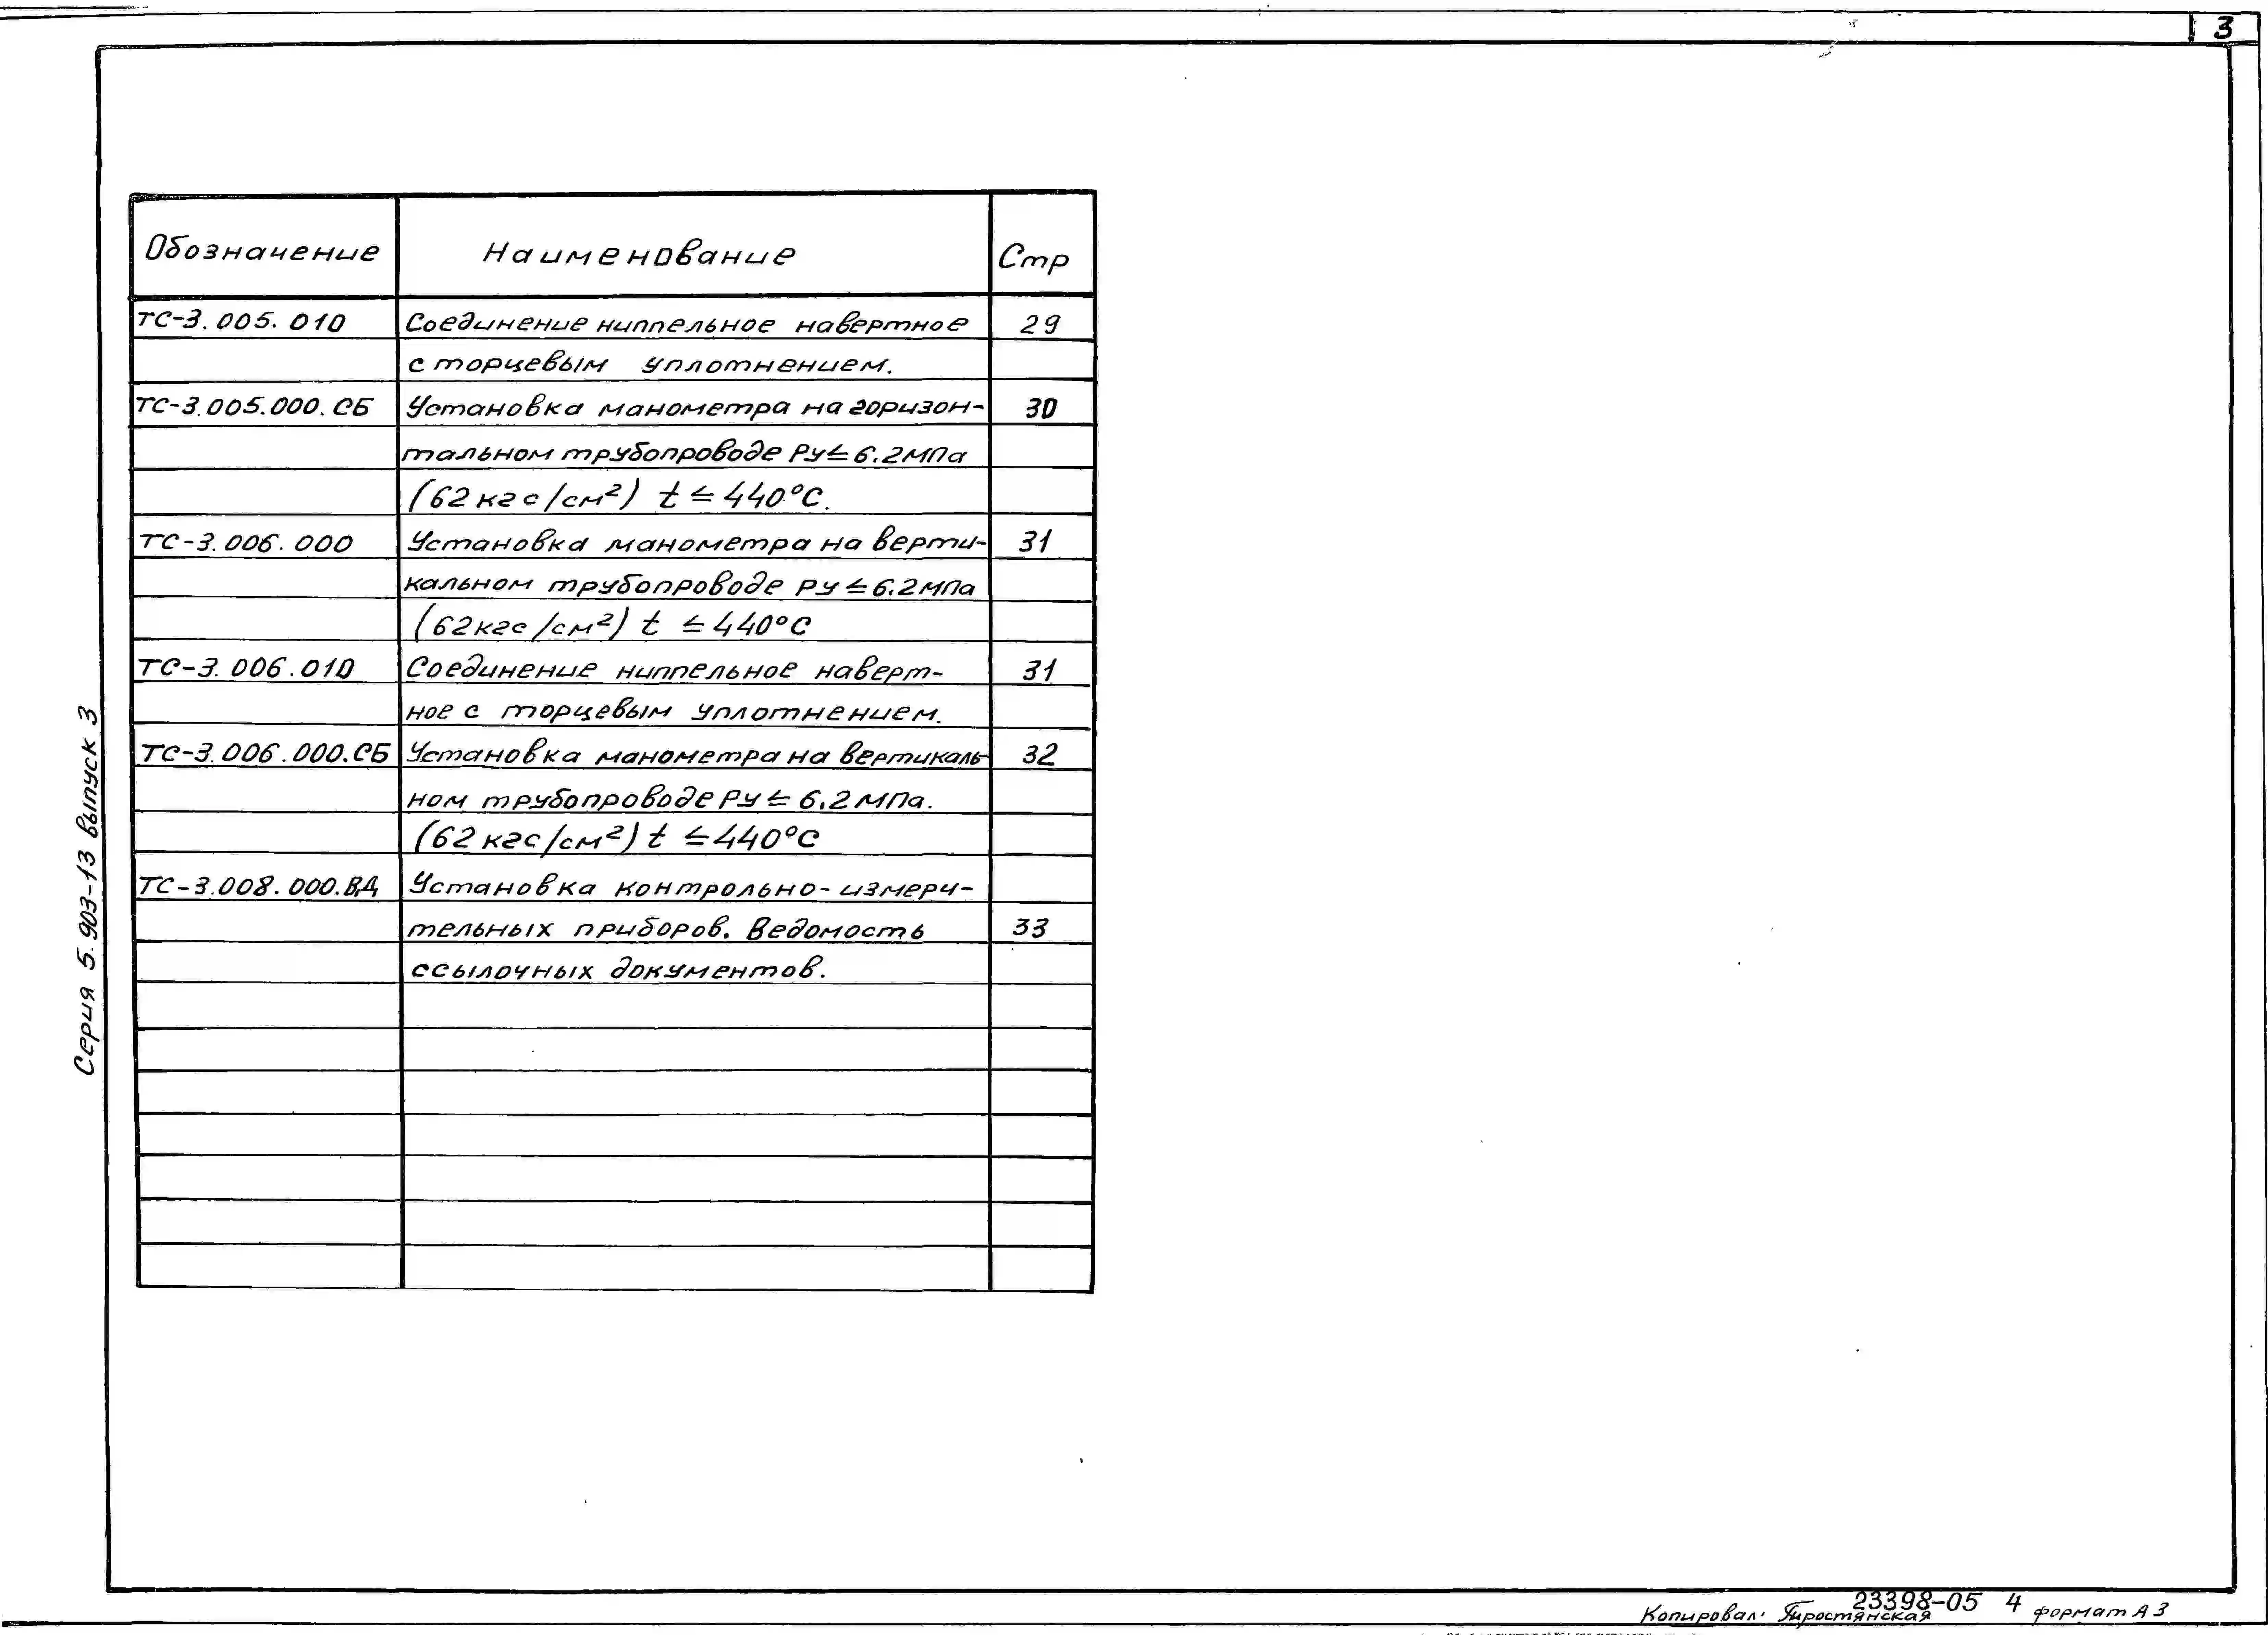 3
Обозначение Наименование Стр
ТС-3.005.010 Соединение ниппельное навертное 29
с торцевым уплотнением.
ТС-3.005.000.СБ Установка манометра на горизон- 30
тальном трубопроводе Ру≤6.2МПа
(62кгс/см²) t ≤ 440°С.
ТС-3.006.000 Установка манометра на верти- 31
кальном трубопроводе Ру≤6.2МПа
(62кгс/см²) t ≤440°С
ТС-3.006.010 Соединение ниппельное наверт- 31
ное с торцевым уплотнением.
ТС-3.006.000.СБ Установка манометра на вертикаль- 32
ном трубопроводе Ру≤6,2МПа.
(62кгс/см²) t ≤440°С
ТС-3.008.000.ВД Установка контрольно-измери-
тельных приборов. Ведомость 33
ссылочных документов.
Серия 5.903-13 выпуск 3
23398-05 4
Копировал: формат А3